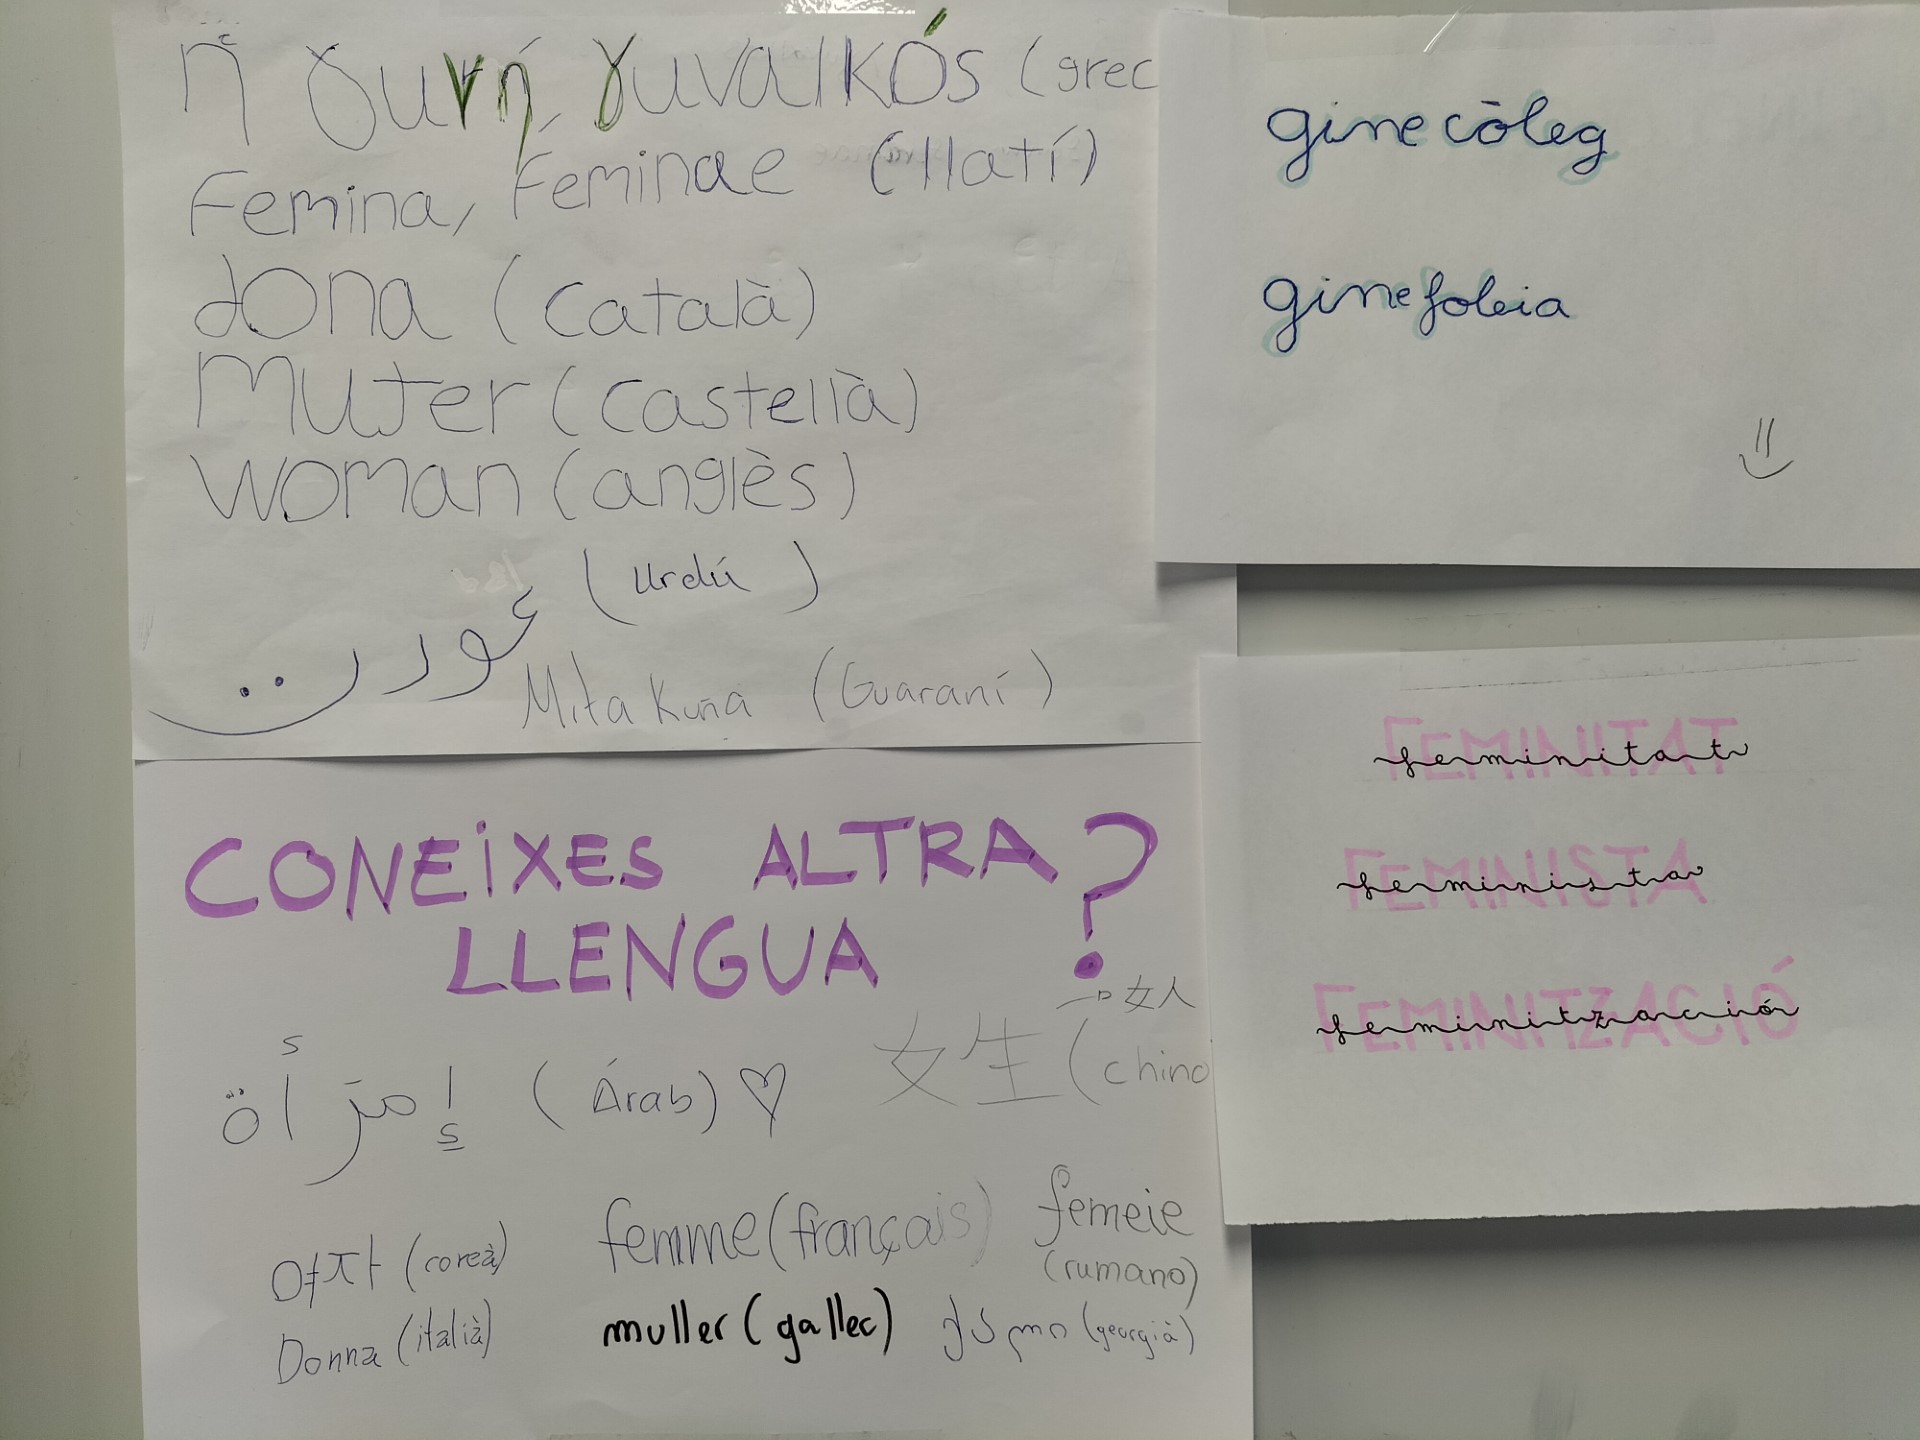 ἡ γυνή, γυναικός (grec
Femina, Feminae (llatí)
dona (català)
Mujer (castellà)
Woman (anglès)
عورت (Urdú)
Mita Kuña (Guaraní)
CONEIXES ALTRA
LLENGUA?
女人
إمرَأة (Árab) ♡ 女生 (chino
여자 (coreà) femme (français) femeie
(rumano)
Donna (italià) muller (gallec) ქალი (georgià)
ginecòleg
ginefobia
FEMINITAT
feminitat
FEMINISTA
feminista
FEMINITZACIÓ
feminització